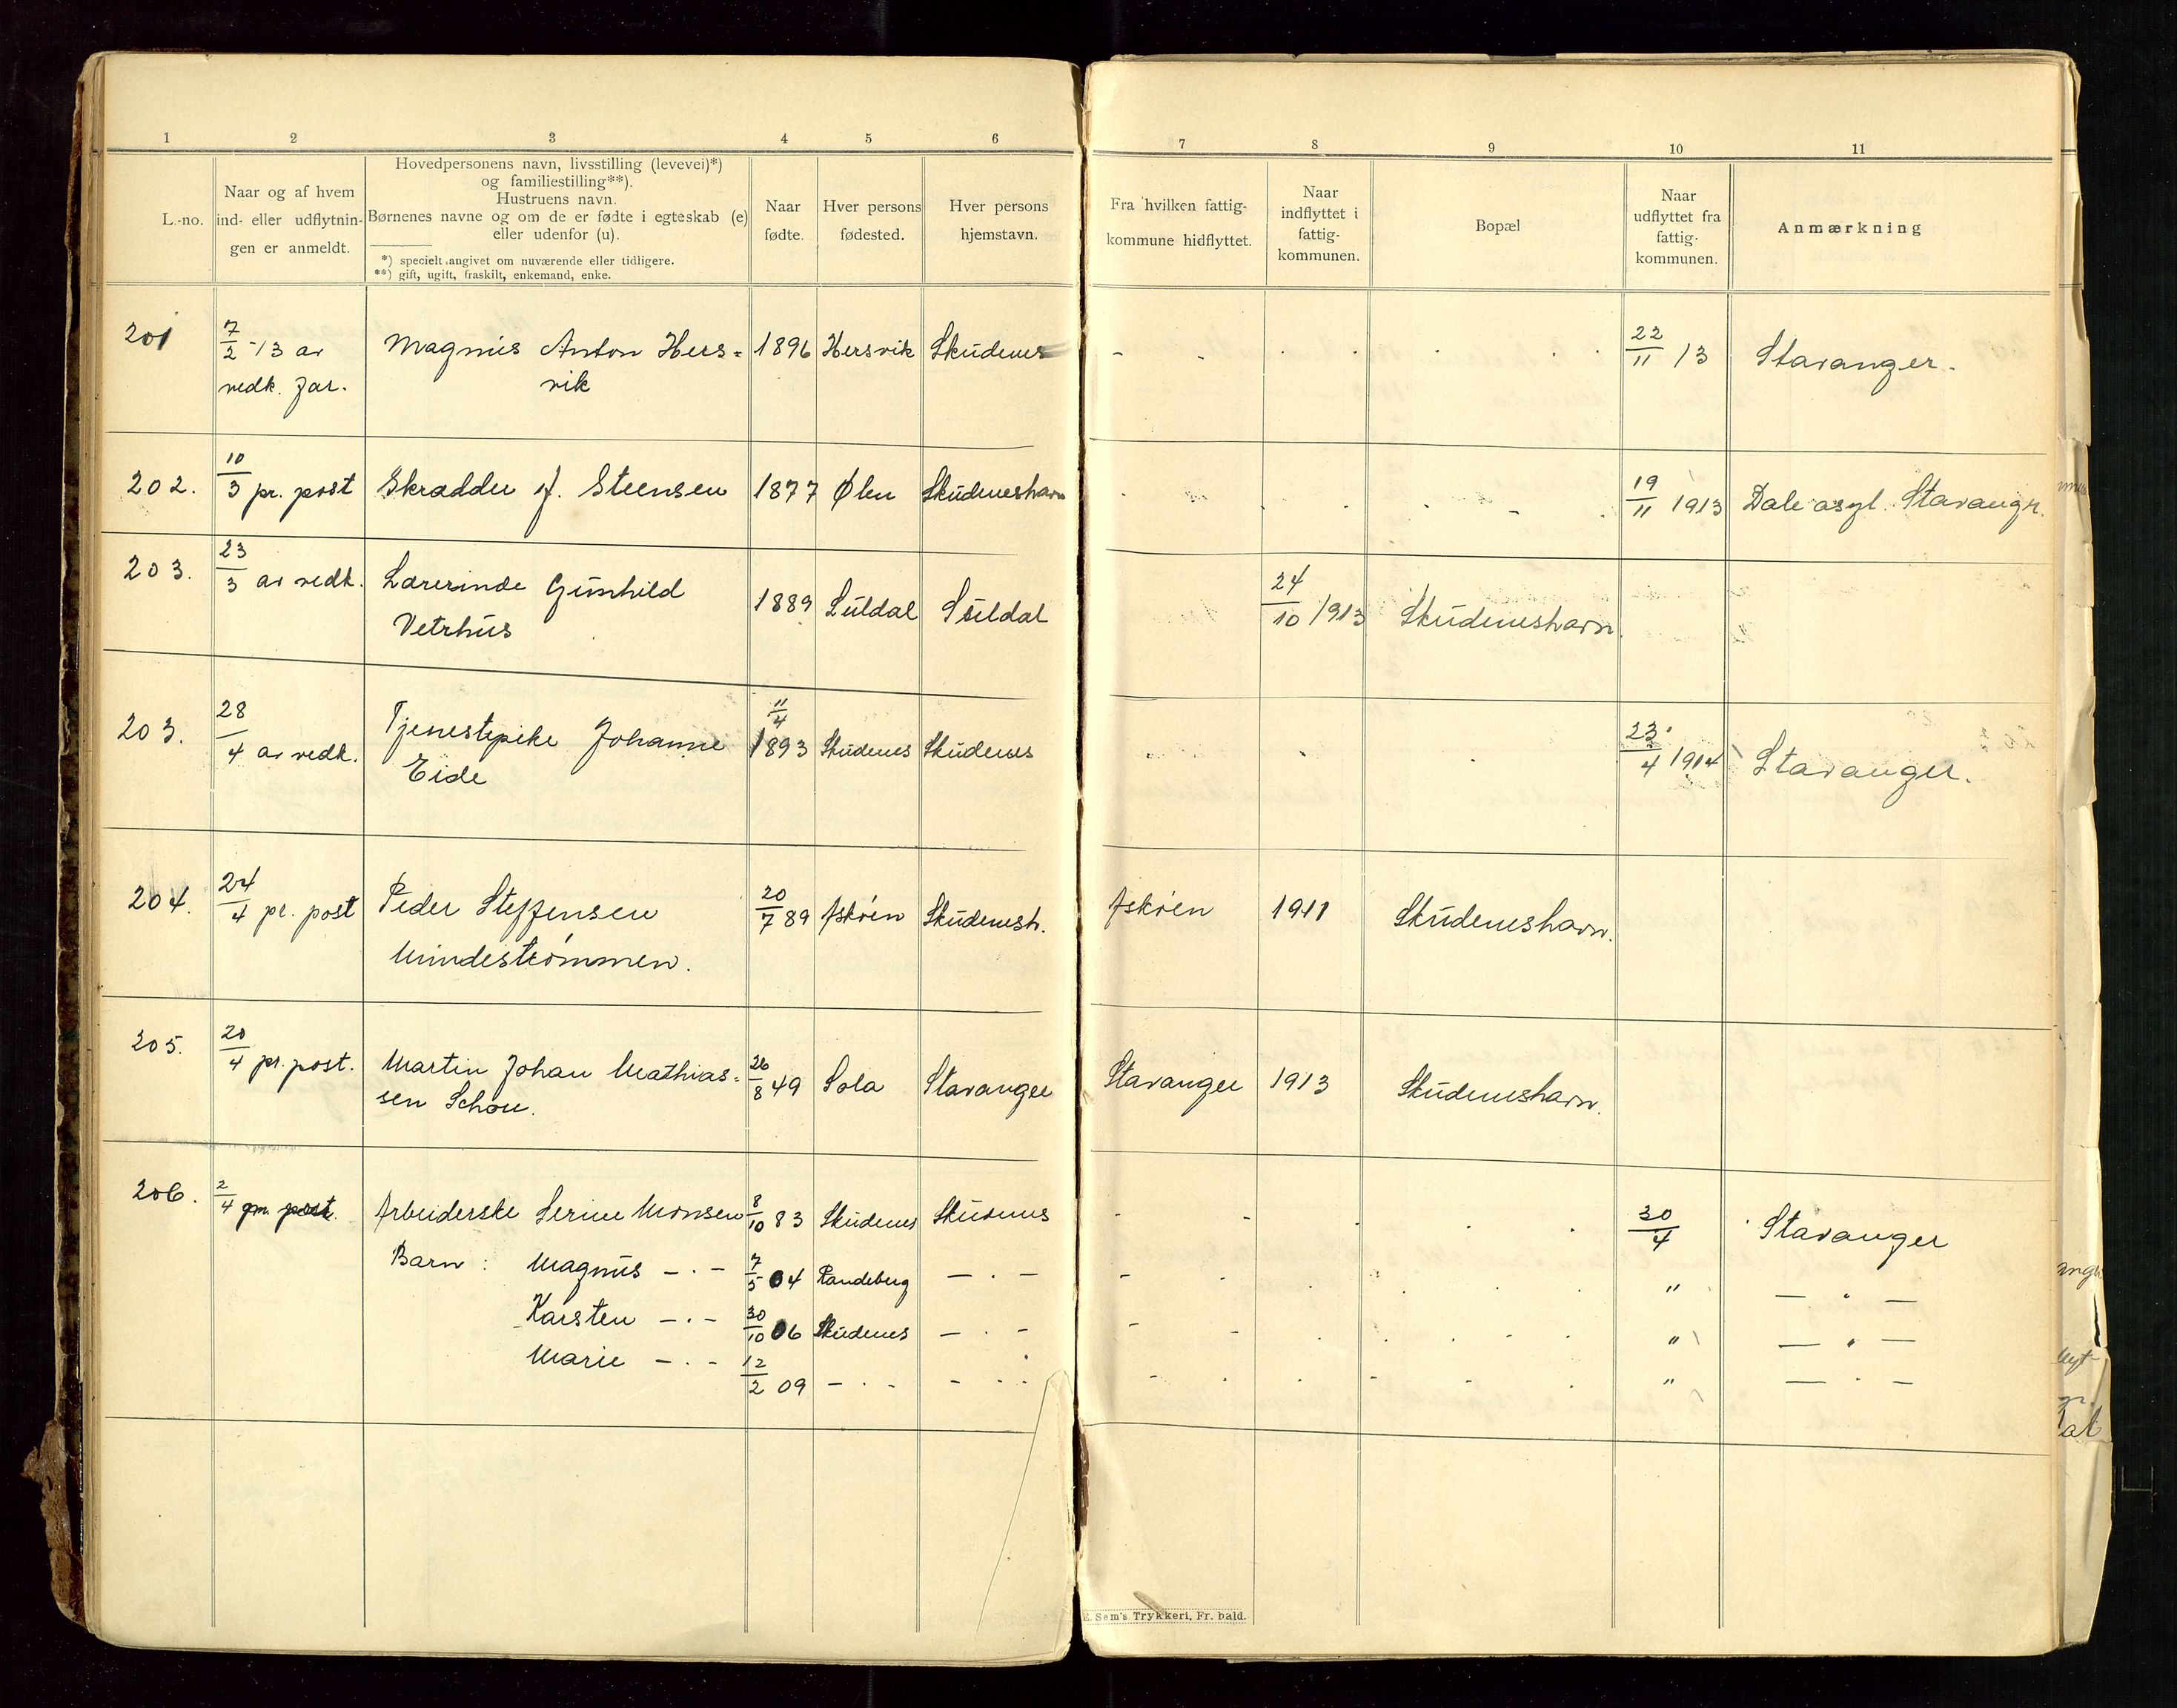 1 2 3 4 5 6 7 8 9 10 11
L.-no.
Naar og af hvem
ind- eller udflytnin-
gen er anmeldt.
Hovedpersonens navn, livsstilling (levevei)*)
og familiestilling**).
Hustruens navn.
Børnenes navne og om de er fødte i egteskab (e)
eller udenfor (u).
*) specielt angivet om nuværende eller tidligere.
**) gift, ugift, fraskilt, enkemand, enke.
Naar
fødte.
Hver persons
fødested.
Hver persons
hjemstavn.
Fra hvilken fattig-
kommune hidflyttet.
Naar
indflyttet i
fattig-
kommunen.
Bopæl
Naar
udflyttet fra
fattig-
kommunen.
Anmærkning
201 7/2 -13 av Magnus Anton Hers= 1896 Hersvik Skudenes - - . . . . . 22/11 13 Stavanger.
vedk. far. vik
202. 10/3 pr. post Skrædder J. Steensen 1877 Ølen Skudeneshavn 19/11 1913 Dale asyl. Stavangr.
203. 23/3 av vedk. Lærerinde Gunhild 1889 Suldal Suldal 24/10 1913 Skudeneshavn
Vetrhus
203. 28/4 av vedk. Tjenestepike Johanne 11/4 1893 Skudenes Skudenes 23/4 1914 Stavanger.
Eide
204. 24/4 pr. post Peder Steffensen 20/7 89 Askøen Skudenesh. Askøen 1911 Skudeneshavn.
Mindestrømmen.
205. 20/4 pr. post. Martin Johan Mathias= 26/8 49 Sola Stavanger Stavanger 1913 Skudeneshavn.
sen Schou.
206. 2/4 post. Arbeiderske Serine Monsen 8/10 83 Skudenes Skudenes - - . . . 30/4 Stavanger
Barn : Magnus - . - 7/5 04 Randeberg - . - - . . . . . " - " -
Karsten - . - 30/10 06 Skudenes - . - - - . . . - . " - " -
Marie - . - 12/2 09 - . - - . - - . . - - . " - . -
E. Sem's Trykkeri, Fr. hald.